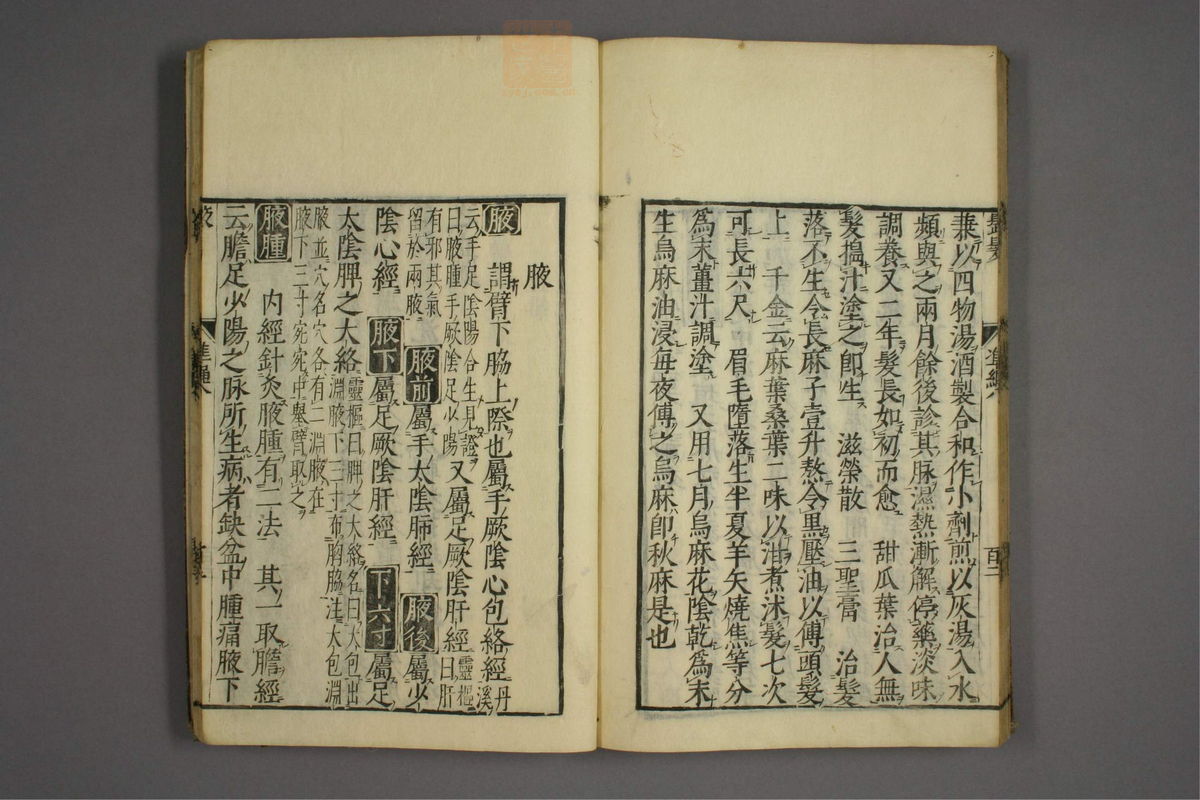 兼以四物湯酒製合和作小劑煎以灰湯入水
頻與之兩月餘後診其脉濕熱漸解停藥淡味
調養又二年髮長如初而愈　甜瓜葉治人無
髮搗汁塗之卽生　滋榮散　三聖膏　治髮
落不生令長麻子壹升熬令黒壓油以傅頭髮
上　千金云麻葉桑葉二味以泔煮沐髮七次
可長六尺　眉毛墮落生半夏羊矢燒焦等分
爲末薑汁調塗　又用七月烏麻花陰乾爲末
生烏麻油浸每夜傅之烏麻卽秋麻是也
腋
腋　謂臂下脇上際也屬手厥陰心包絡經丹溪
云手足陰陽合生見證
曰腋腫手厥陰足少陽又屬足厥陰肝經靈樞曰肝
有邪其氣
留於兩腋　腋前屬手太陰肺經　腋後屬少
陰心經　腋下屬足厥陰肝經　下六寸屬足
太陰脾之大絡靈樞曰脾之大絡名曰大包出
淵腋下三寸布胸脇注大包淵
腋並穴名穴各有二淵腋在
腋下三寸宛宛中舉臂取之
腋腫　内經針灸腋腫有二法　其一取膽經
云膽足少陽之脉所生病者缺盆中腫痛腋下
腋
準繩八